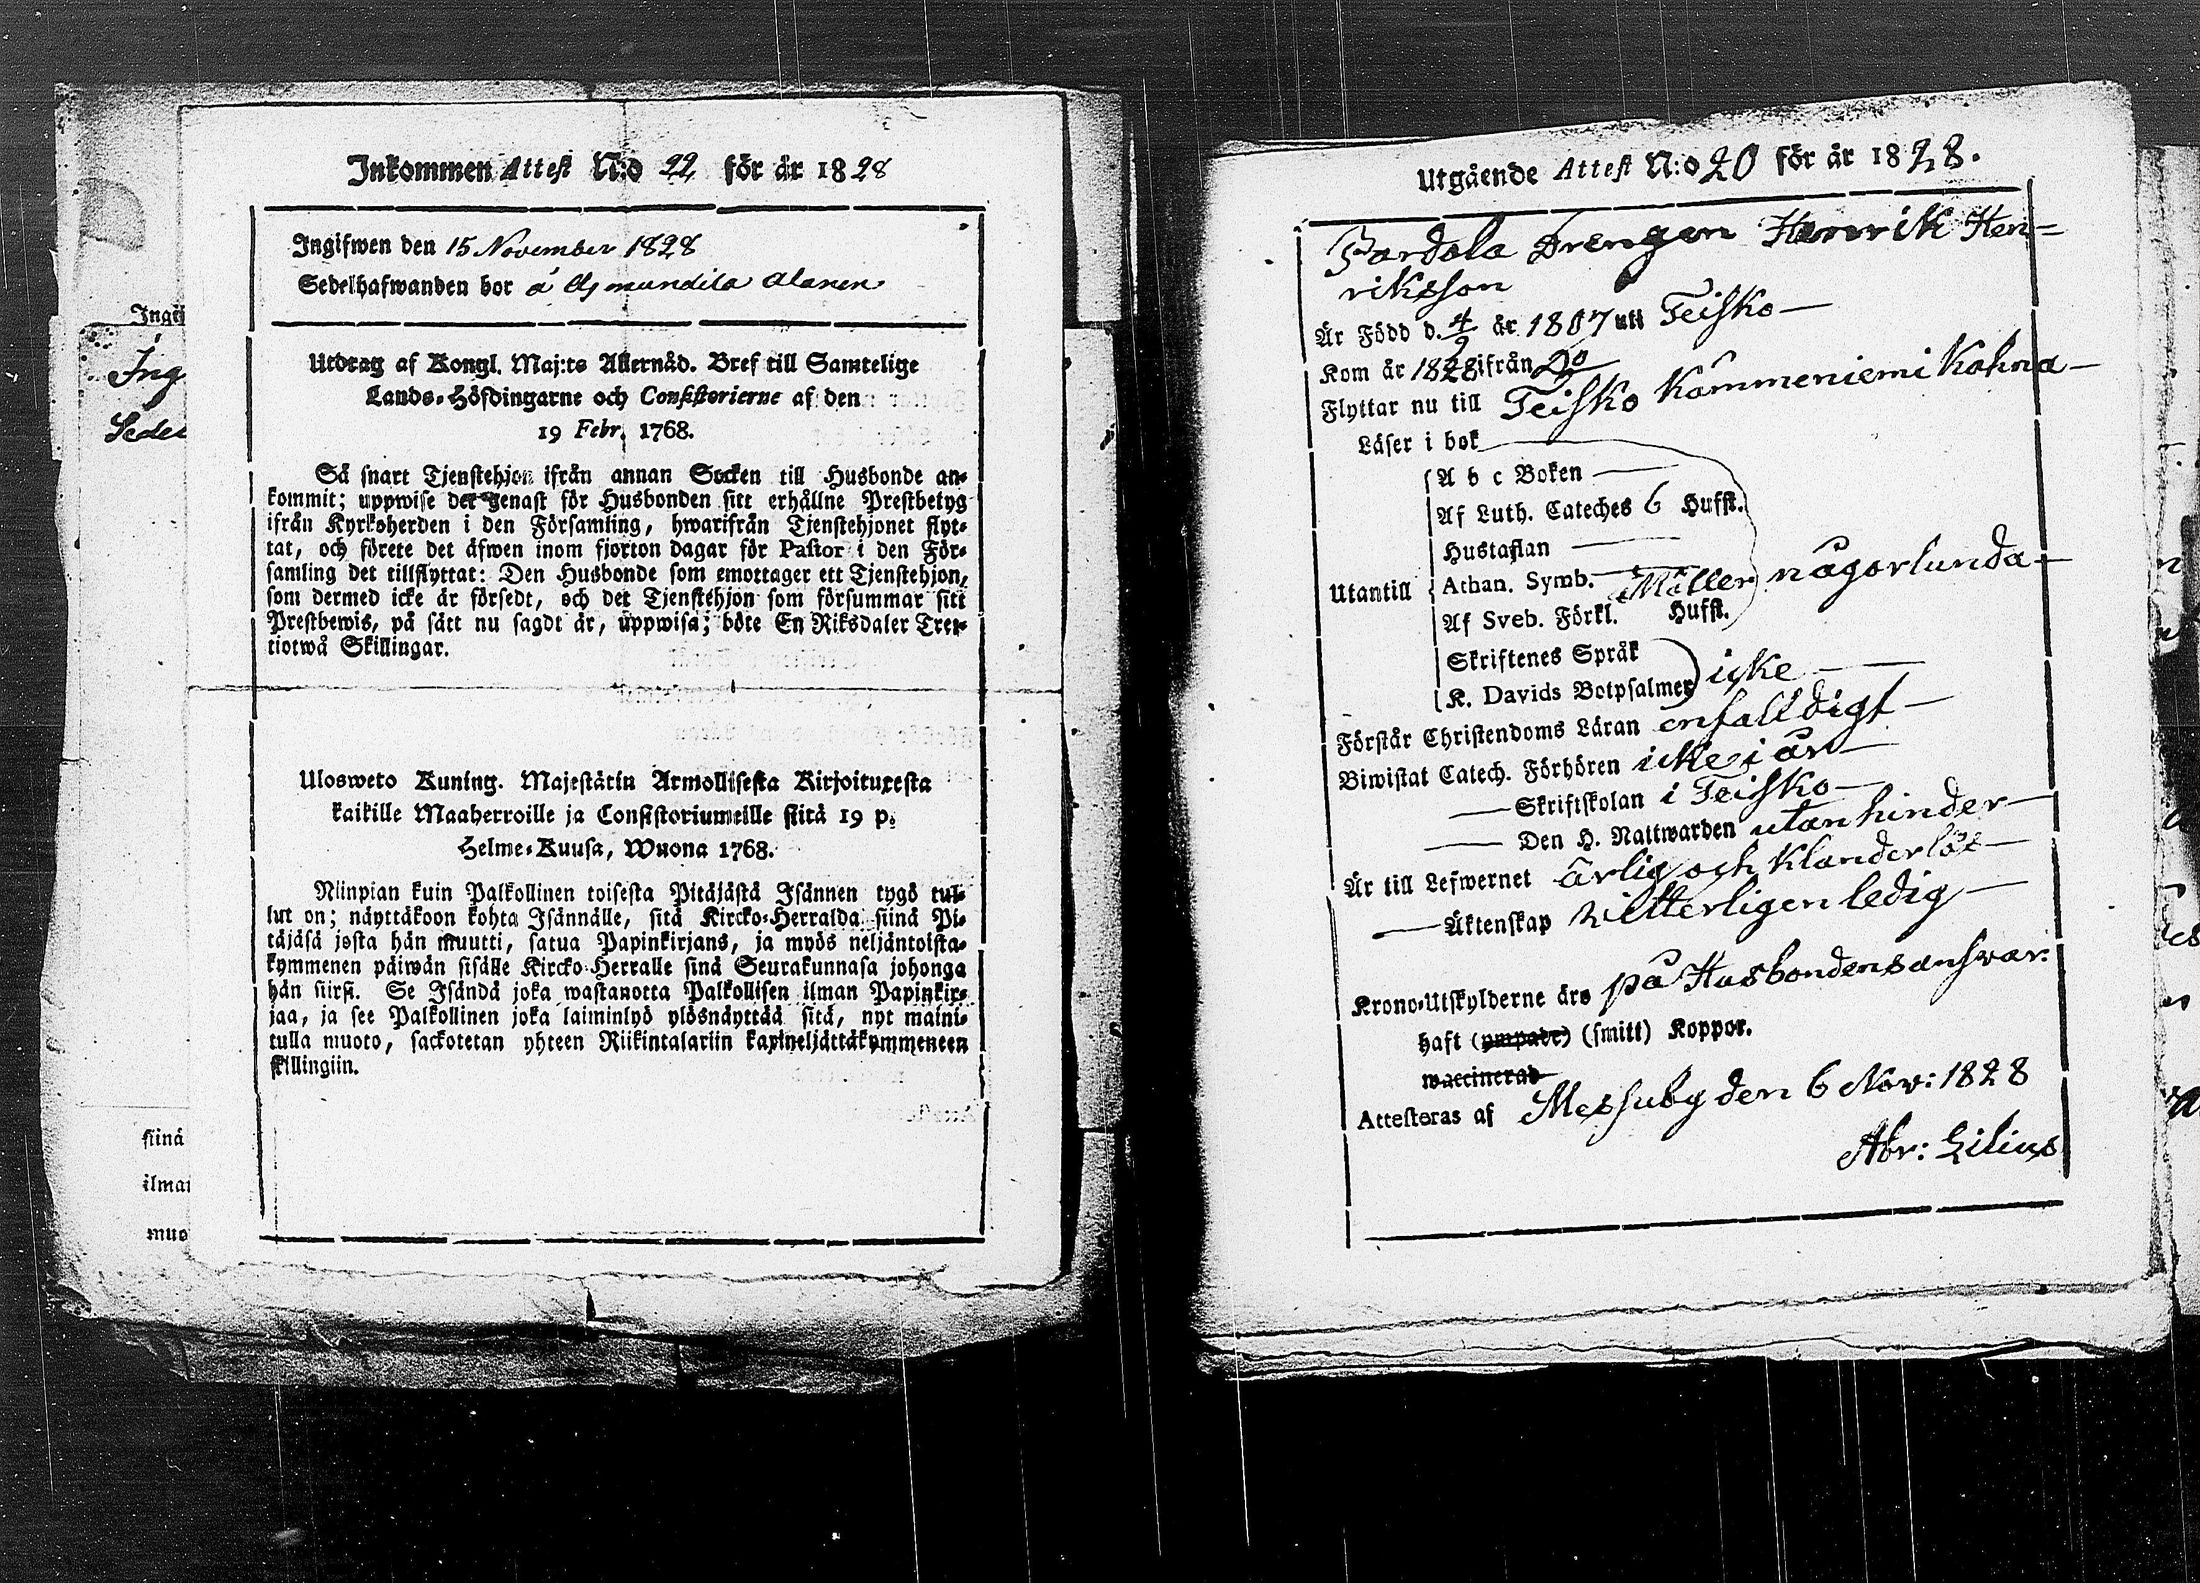 Inkommen Attest N:o 22 för år 1828
Ingifwen den 15 November 1828
Sedelhafwanden bor å Asmundila Alanen
Utdrag af Kongl. Maj:ts Allernåd. Bref till Samtelige
Lands-Höfdingarne och Consistorierne af den
19 Febr. 1768.
Så snart Tjenstehjon ifrån annan Socken till Husbonde an-
kommit; uppwise det genast för Husbonden sitt erhållne Prestbetyg
ifrån Kyrkoherden i den Församling, hwarifrån Tjenstehjonet flyt-
tat, och förete det äfwen inom fjorton dagar för Pastor i den För-
samling det tillflyttat: Den Husbonde som emottager ett Tjenstehjon,
som dermed icke är försedt, och det Tjenstehjon som försummar sitt
Prestbewis, på sätt nu sagdt är, uppwisa; böte En Riksdaler Tret-
tiotwå Skillingar.
Ulosweto Kuning. Majestätin Armollisesta Kirjoituxesta
kaikille Maaherroille ja Consistoriumeille siitä 19 p.
Helme-Kuusa, Wuona 1768.
Niinpian kuin Palkollinen toisesta Pitäjästä Isännen tygö tul-
lut on; näyttäkoon kohta Isännälle, sitä Kircko-Herralda siinä Pi-
täjäsä josta hän muutti, saatua Papinkirjans, ja myös neljäntoista-
kymmenen päiwän sisälle Kircko-Herralle sinä Seurakunnasa johonga
hän siirsi. Se Isändä joka wastanotta Palkollisen ilman Papinkir-
jaa, ja see Palkollinen joka laiminlyö ylösnäyttää sitä, nyt maini-
tulla muoto, sackotetan yhteen Riikintalariin kaxineljättäkymmeneen
skillingiin.
Ing
Sedel
siinä
ilman
muo
Utgående Attest N:o 20 för år 1828.
Pardala Drengen Henrik Hen-
riksson
Är Född d. 4/9 år 1807 uti Teisko
Kom år 1828 ifrån Do
Flyttar nu till Teisko Kämmeniemi Kohna
Läser i bok
A b c Boken
Af Luth. Cateches 6 Hufst.
Hustaflan
Utantill Athan. Symb. Möller någorlunda
Af Sveb. Förkl. Hufst.
Skriftenes Språk
K. Davids Botpsalmer icke
Förstår Christendoms Läran enfalldigt
Biwistat Catech. Förhören icke i år
Skriftskolan i Teisko
Den H. Nattwarden utan hinder
Är till Lefwernet ärlig och klanderlös
Äktenskap witterligen ledig
Krono-Utskylderne äro på Husbondens answar:
haft (ympade) (smitt) Koppor.
waccinerad
Attesteras af Messuby den 6 Nov: 1828
Abr: Lilius